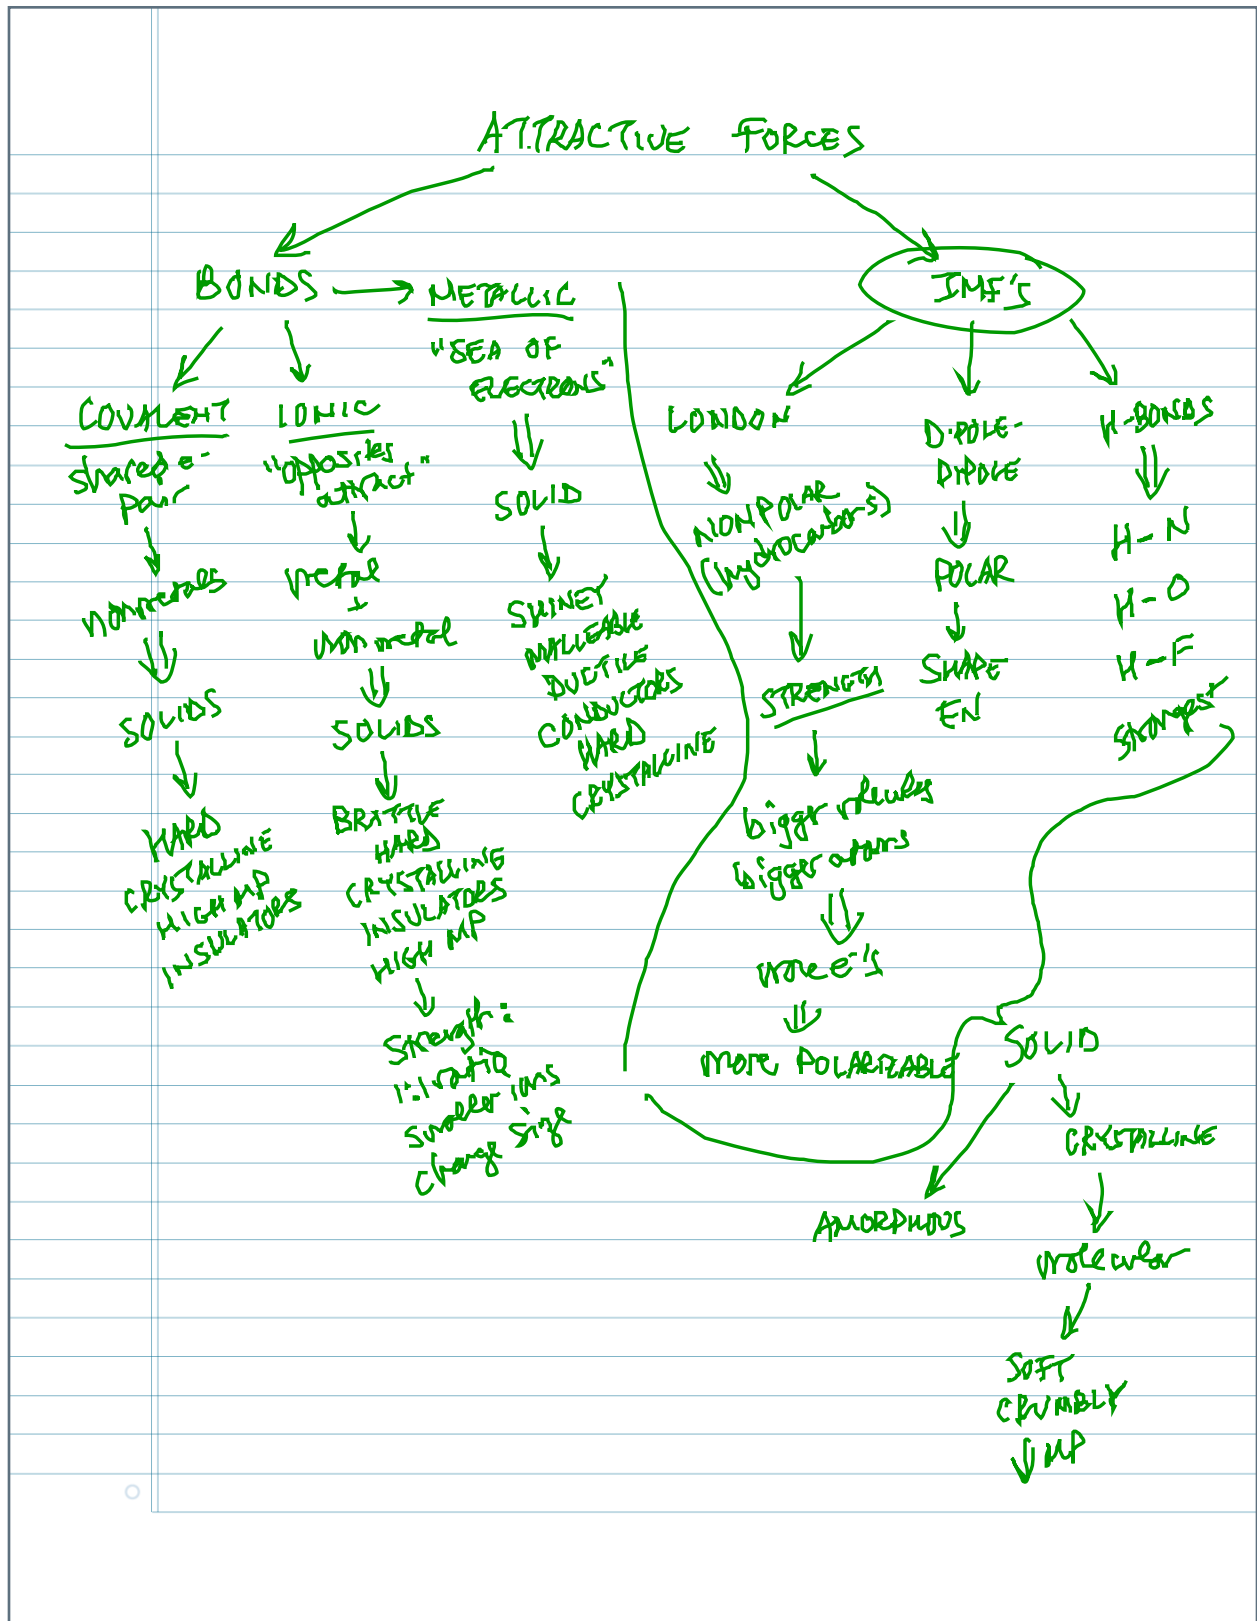 ATTRACTIVE FORCES
BONDS
METALLIC
"SEA OF
ELECTRONS"
SOLID
SHINEY
MALLEABLE
DUCTILE
CONDUCTORS
HARD
CRYSTALLINE
COVALENT
shared e-
pair
nonmetals
SOLIDS
HARD
CRYSTALLINE
HIGH MP
INSULATORS
IONIC
"opposites
attract"
metal
+
nonmetal
SOLIDS
BRITTLE
HARD
CRYSTALLINE
INSULATORS
HIGH MP
Strength:
1:1 ratio
smaller ions
charge size
IMF'S
LONDON
NONPOLAR
(hydrocarbons)
STRENGTH
bigger molecules
bigger atoms
more e-'s
MORE POLARIZEABLE
DIPOLE-
DIPOLE
POLAR
SHAPE
EN
H-BONDS
H-N
H-O
H-F
strongest
SOLID
AMORPHOUS
CRYSTALLINE
molecular
SOFT
CRUMBLY
↓ MP